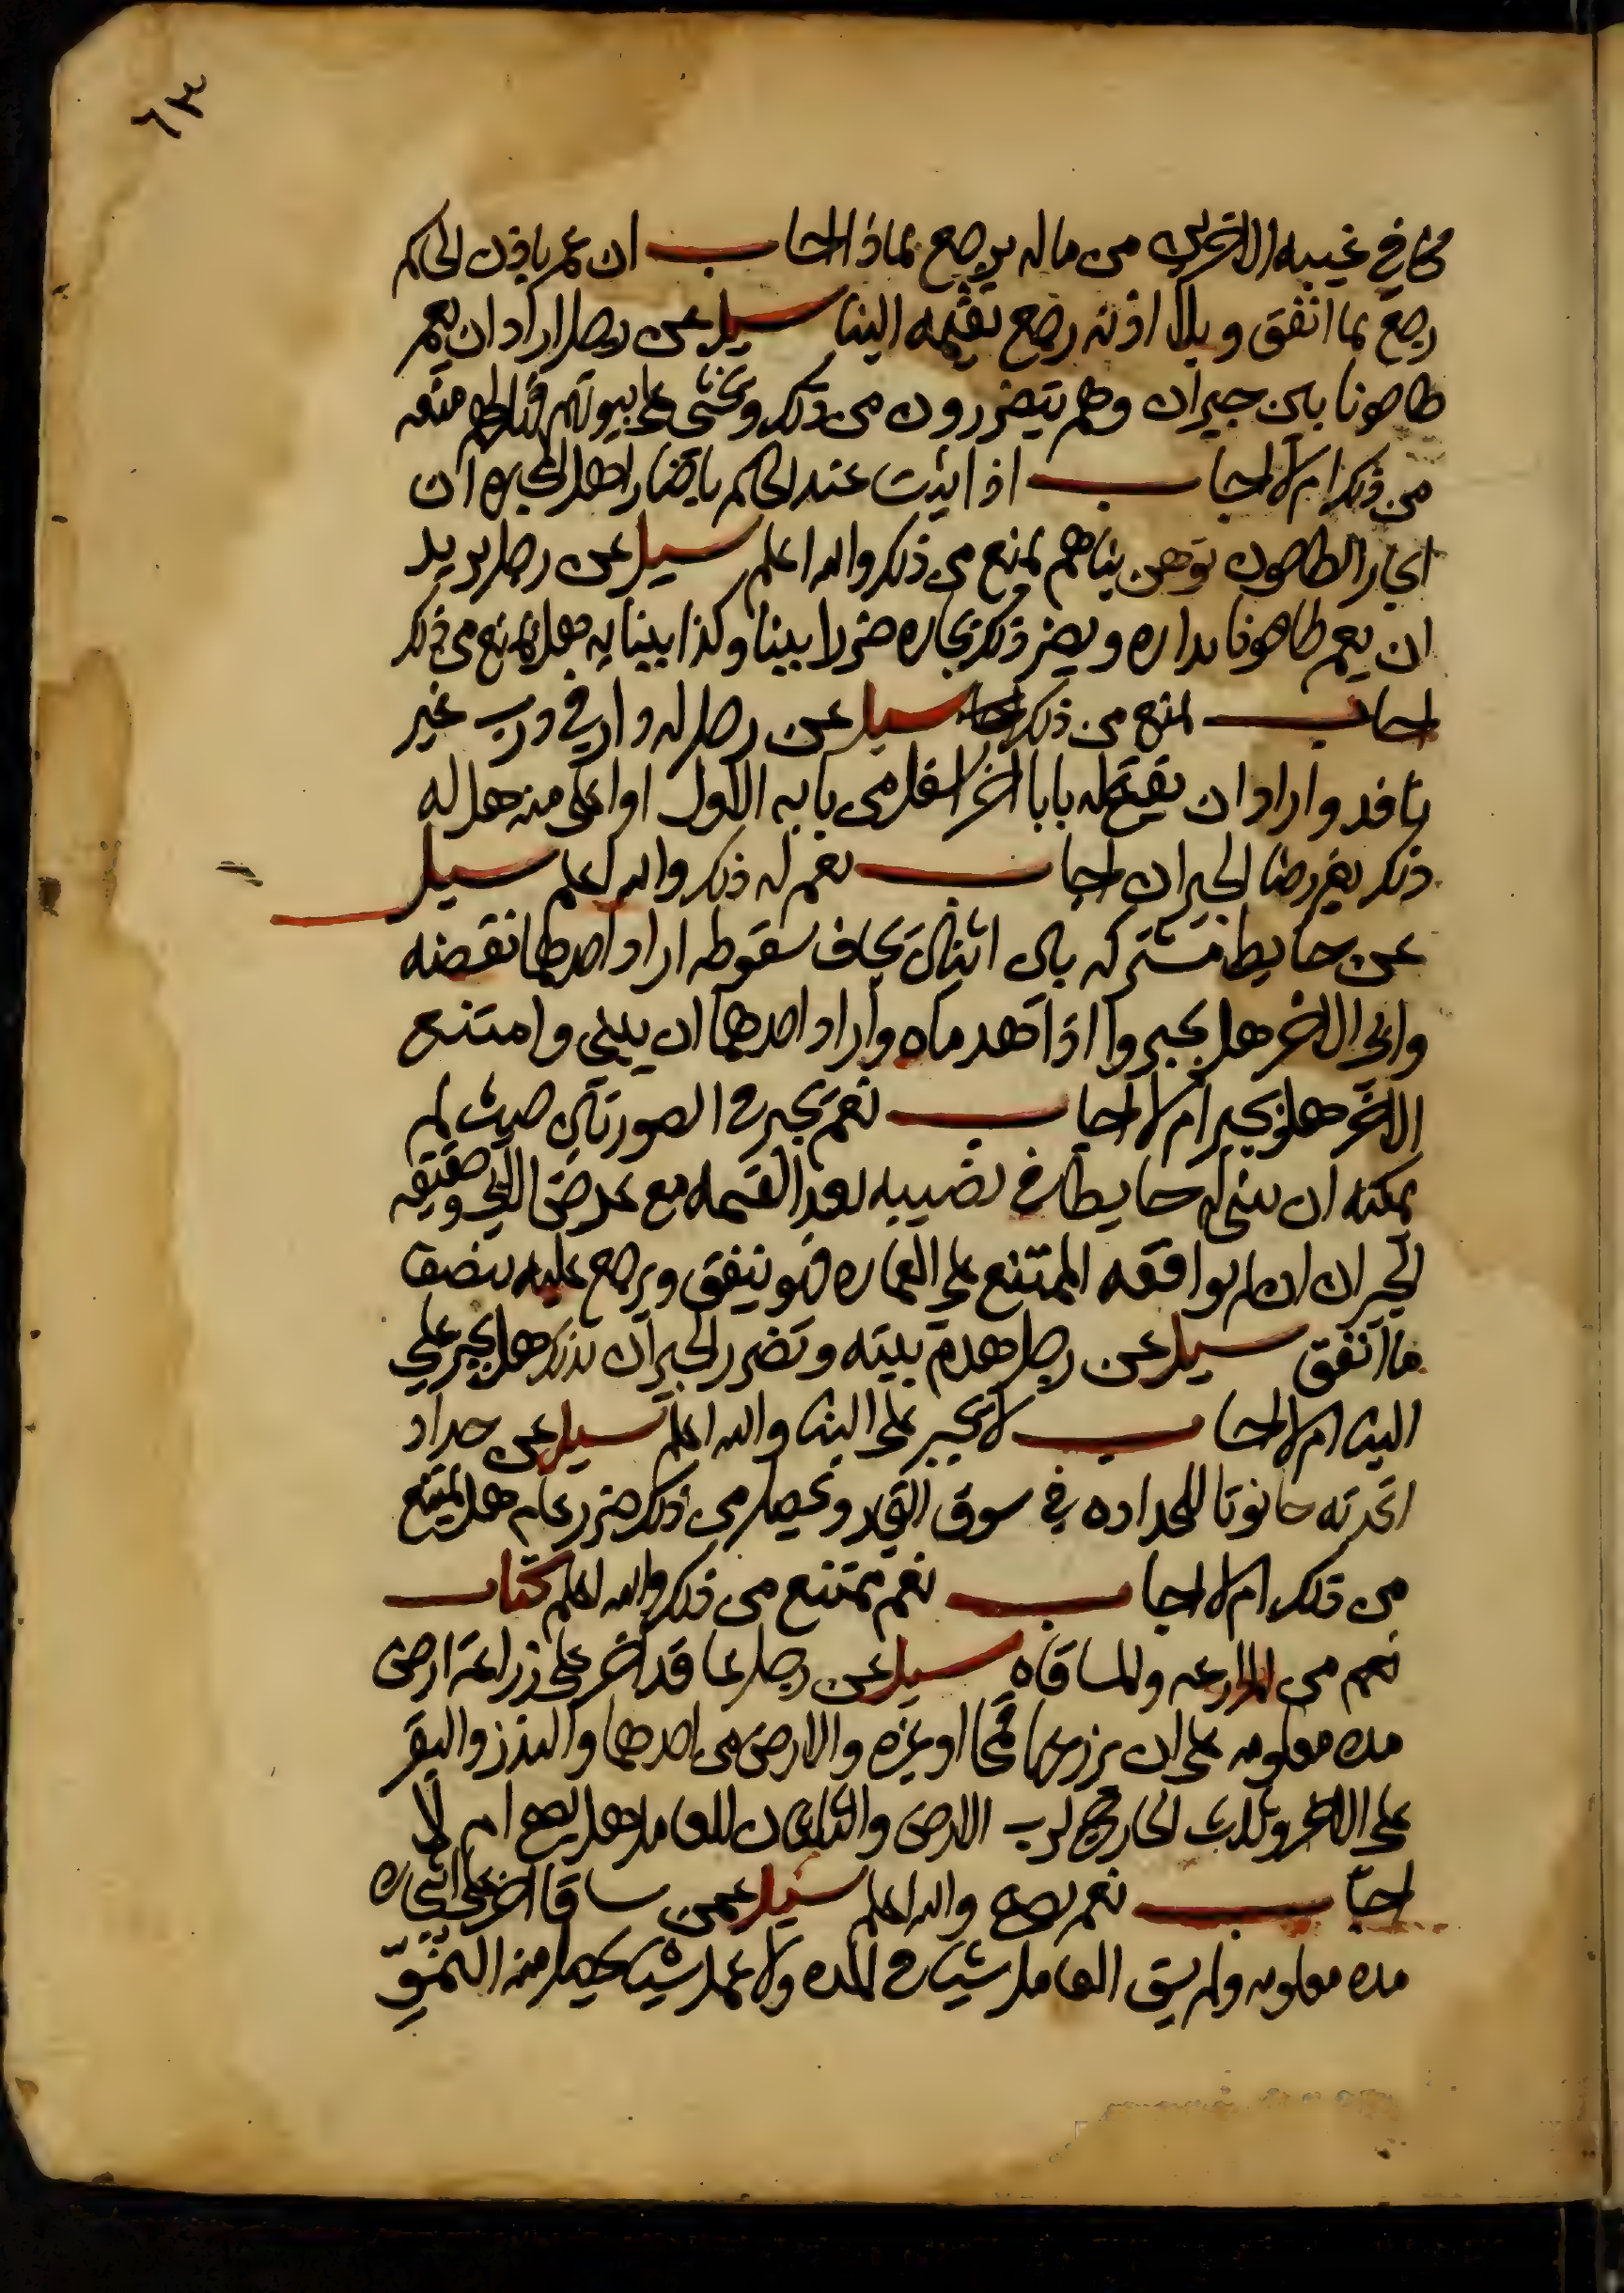 ٦٣
في غيبه الاخرين من ماله يرجع بماذا اجاب ان عمر باذن الحاكم
رجع بما انفق وبلا اذنه رجع بقيمه البنا سيل عن رجل اراد ان يعمر
طاحونا بين جيران وهم يتضررون من ذلك ويخشي علي بيوتهم فهل لهم منعه
من ذلك ام لا اجاب اذا ثبت عند الحاكم باخبار اهل الخبره ان
احجار الطاحون توهن بناهم يمنع من ذلك والله اعلم سيل عن رجل يريد
ان يعمر طاحونا بداره ويضر ذلك بجاره ضررا بينا وكذا ببنايه فهل يمنع من ذلك
اجاب يمنع من ذلك سيل عن رجل له دار في درب غير
نافد واراد ان يفتح له بابا اخر اسفل من بابه الاول او اعلي منه هل له
ذلك بغير رضا الجيران اجاب نعم له ذلك والله اعلم سيل
عن حايط مشتركه بين اثنين يخاف سقوطه اراد احدهما نقضه
وابي الاخر هل يجبر واذا هدماه واراد احدهما ان يبني وامتنع
الاخر هل يجبر ام لا اجاب نعم يجبر في الصورتين حيث لم
يمكنه ان يبني له حايطا في نصيبه بعد القسمه مع عرض الباقي وحقيقه
الجبر ان ان لم يوافقه الممتنع علي العماره فهو ينفق ويرجع عليه بنصف
ما انفق سيل عن رجل هدم بيته وتضرر الجيران بذلك هل يجبر علي
البنا ام لا اجاب لا يجبر علي البنا والله اعلم سيل عن حداد
اتخد له حانوتا للحداده في سوق ويحصل من ذلك ضرر عام هل يمنع
من ذلك ام لا اجاب نعم يمتنع من ذلك والله اعلم كتاب
نعم من المزارعه والمساقاه سيل عن رجل عاقد اخر علي زراعة ارض
مده معلومه علي ان يزرعها قمحا او غيره والارض من احدهما والبذر والبقر
علي الاخر وثلث الخارج لرب الارض والثلثان للعامل هل يصح ام لا
اجاب نعم يصح والله اعلم سيل عمن ساقا اخر علي اشجاره
مده معلومه ولم يسق العامل شيا في المده ولا عمل شيا يحصل منه النمو